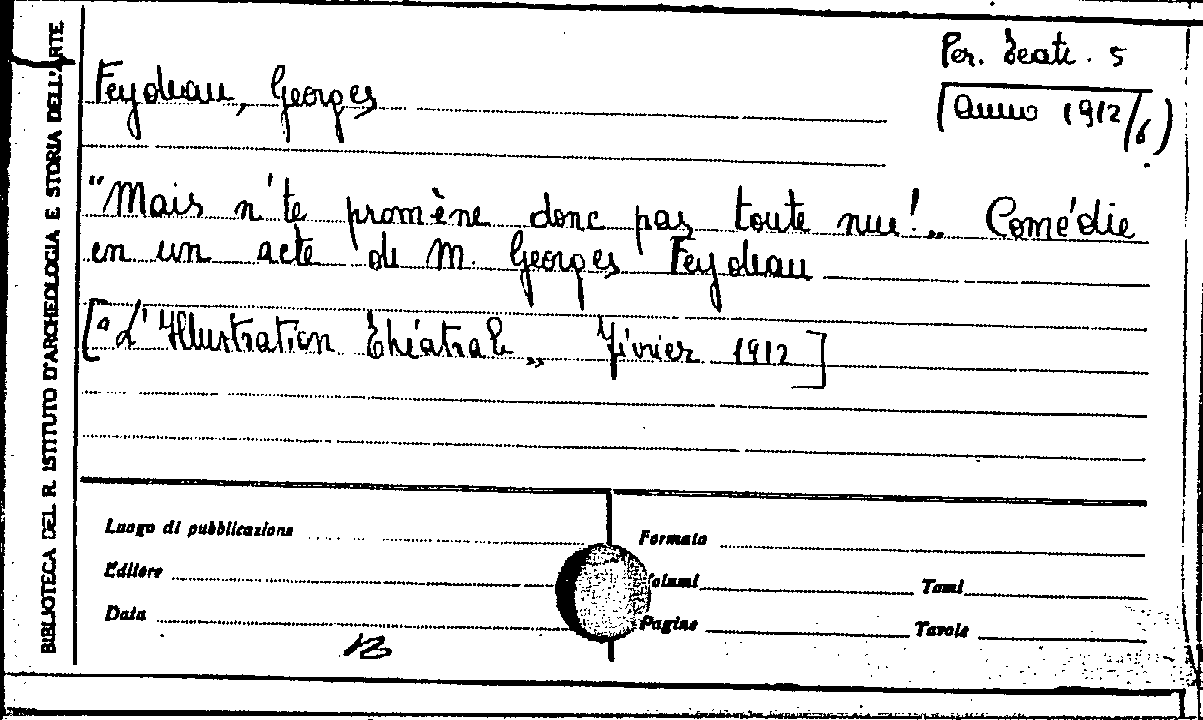 BIBLIOTECA DEL R. ISTITUTO D'ARCHEOLOGIA E STORIA DELL'ARTE
Per. Teatr. 5
[anno 1912/6)
Feydeau, Georges
"Mais n'te promène donc pas toute nue!„ Comédie
en un acte de M. Georges Feydeau
["L'Illustration Théatrale„ Févrièr 1912]
Luogo di pubblicazione
Formato
Editore
Volumi
Tomi
Data
Pagine
Tavole